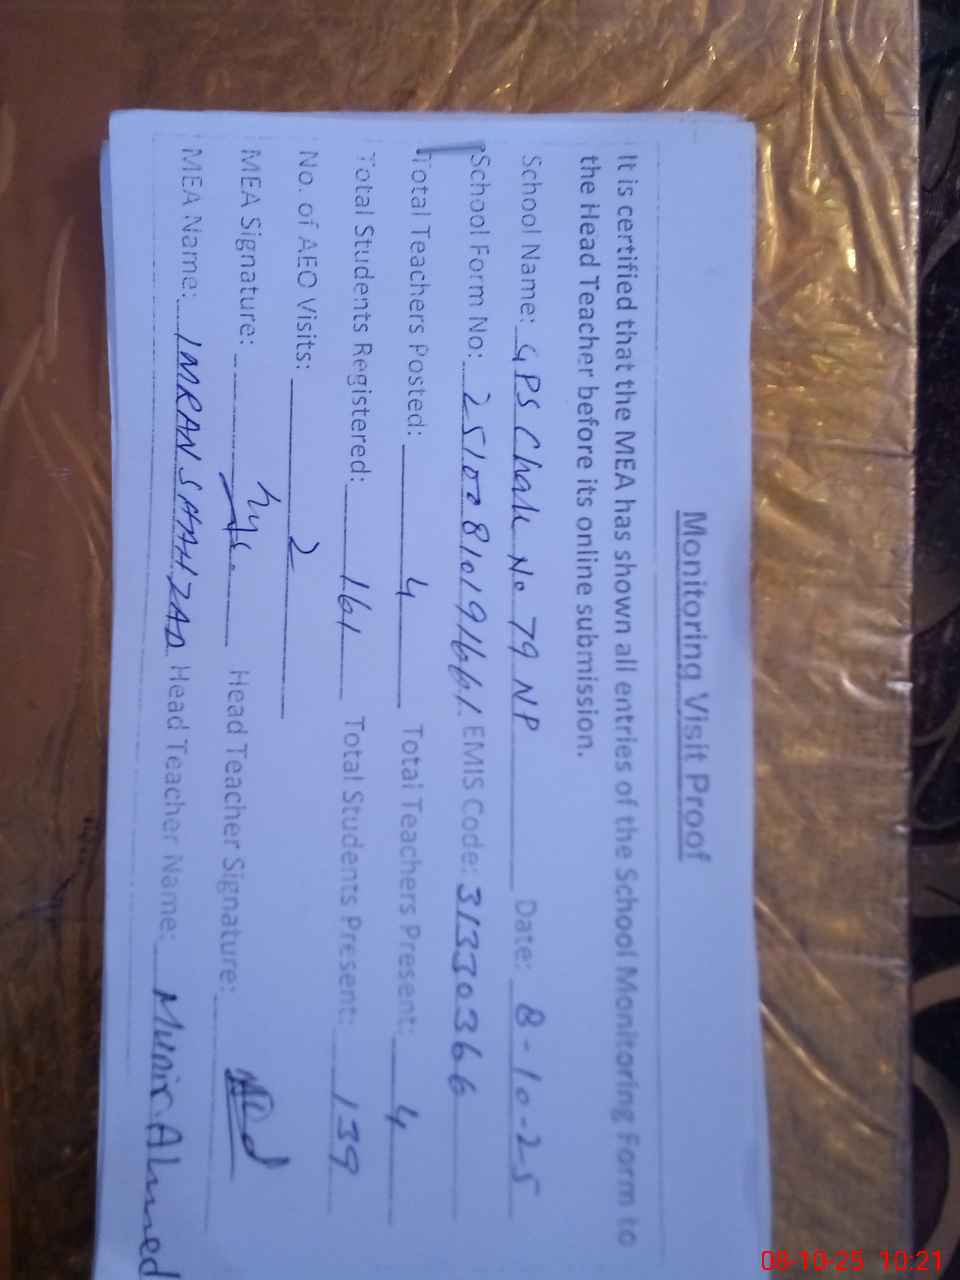 Monitoring Visit Proof
It is certified that the MEA has shown all entries of the School Monitoring Form to
the Head Teacher before its online submission.
School Name: GPS Chak No 79 NP Date: 8-10-25
School Form No: EMIS Code: 31330366
Total Teachers Posted: 4 Total Teachers Present: 4
Total Students Registered: 161 Total Students Present: 139
No. of AEO Visits: 2
MEA Signature: Head Teacher Signature:
MEA Name: IMRAN SHAHZAD Head Teacher Name: Munir Ahmed
08-10-25 10:21